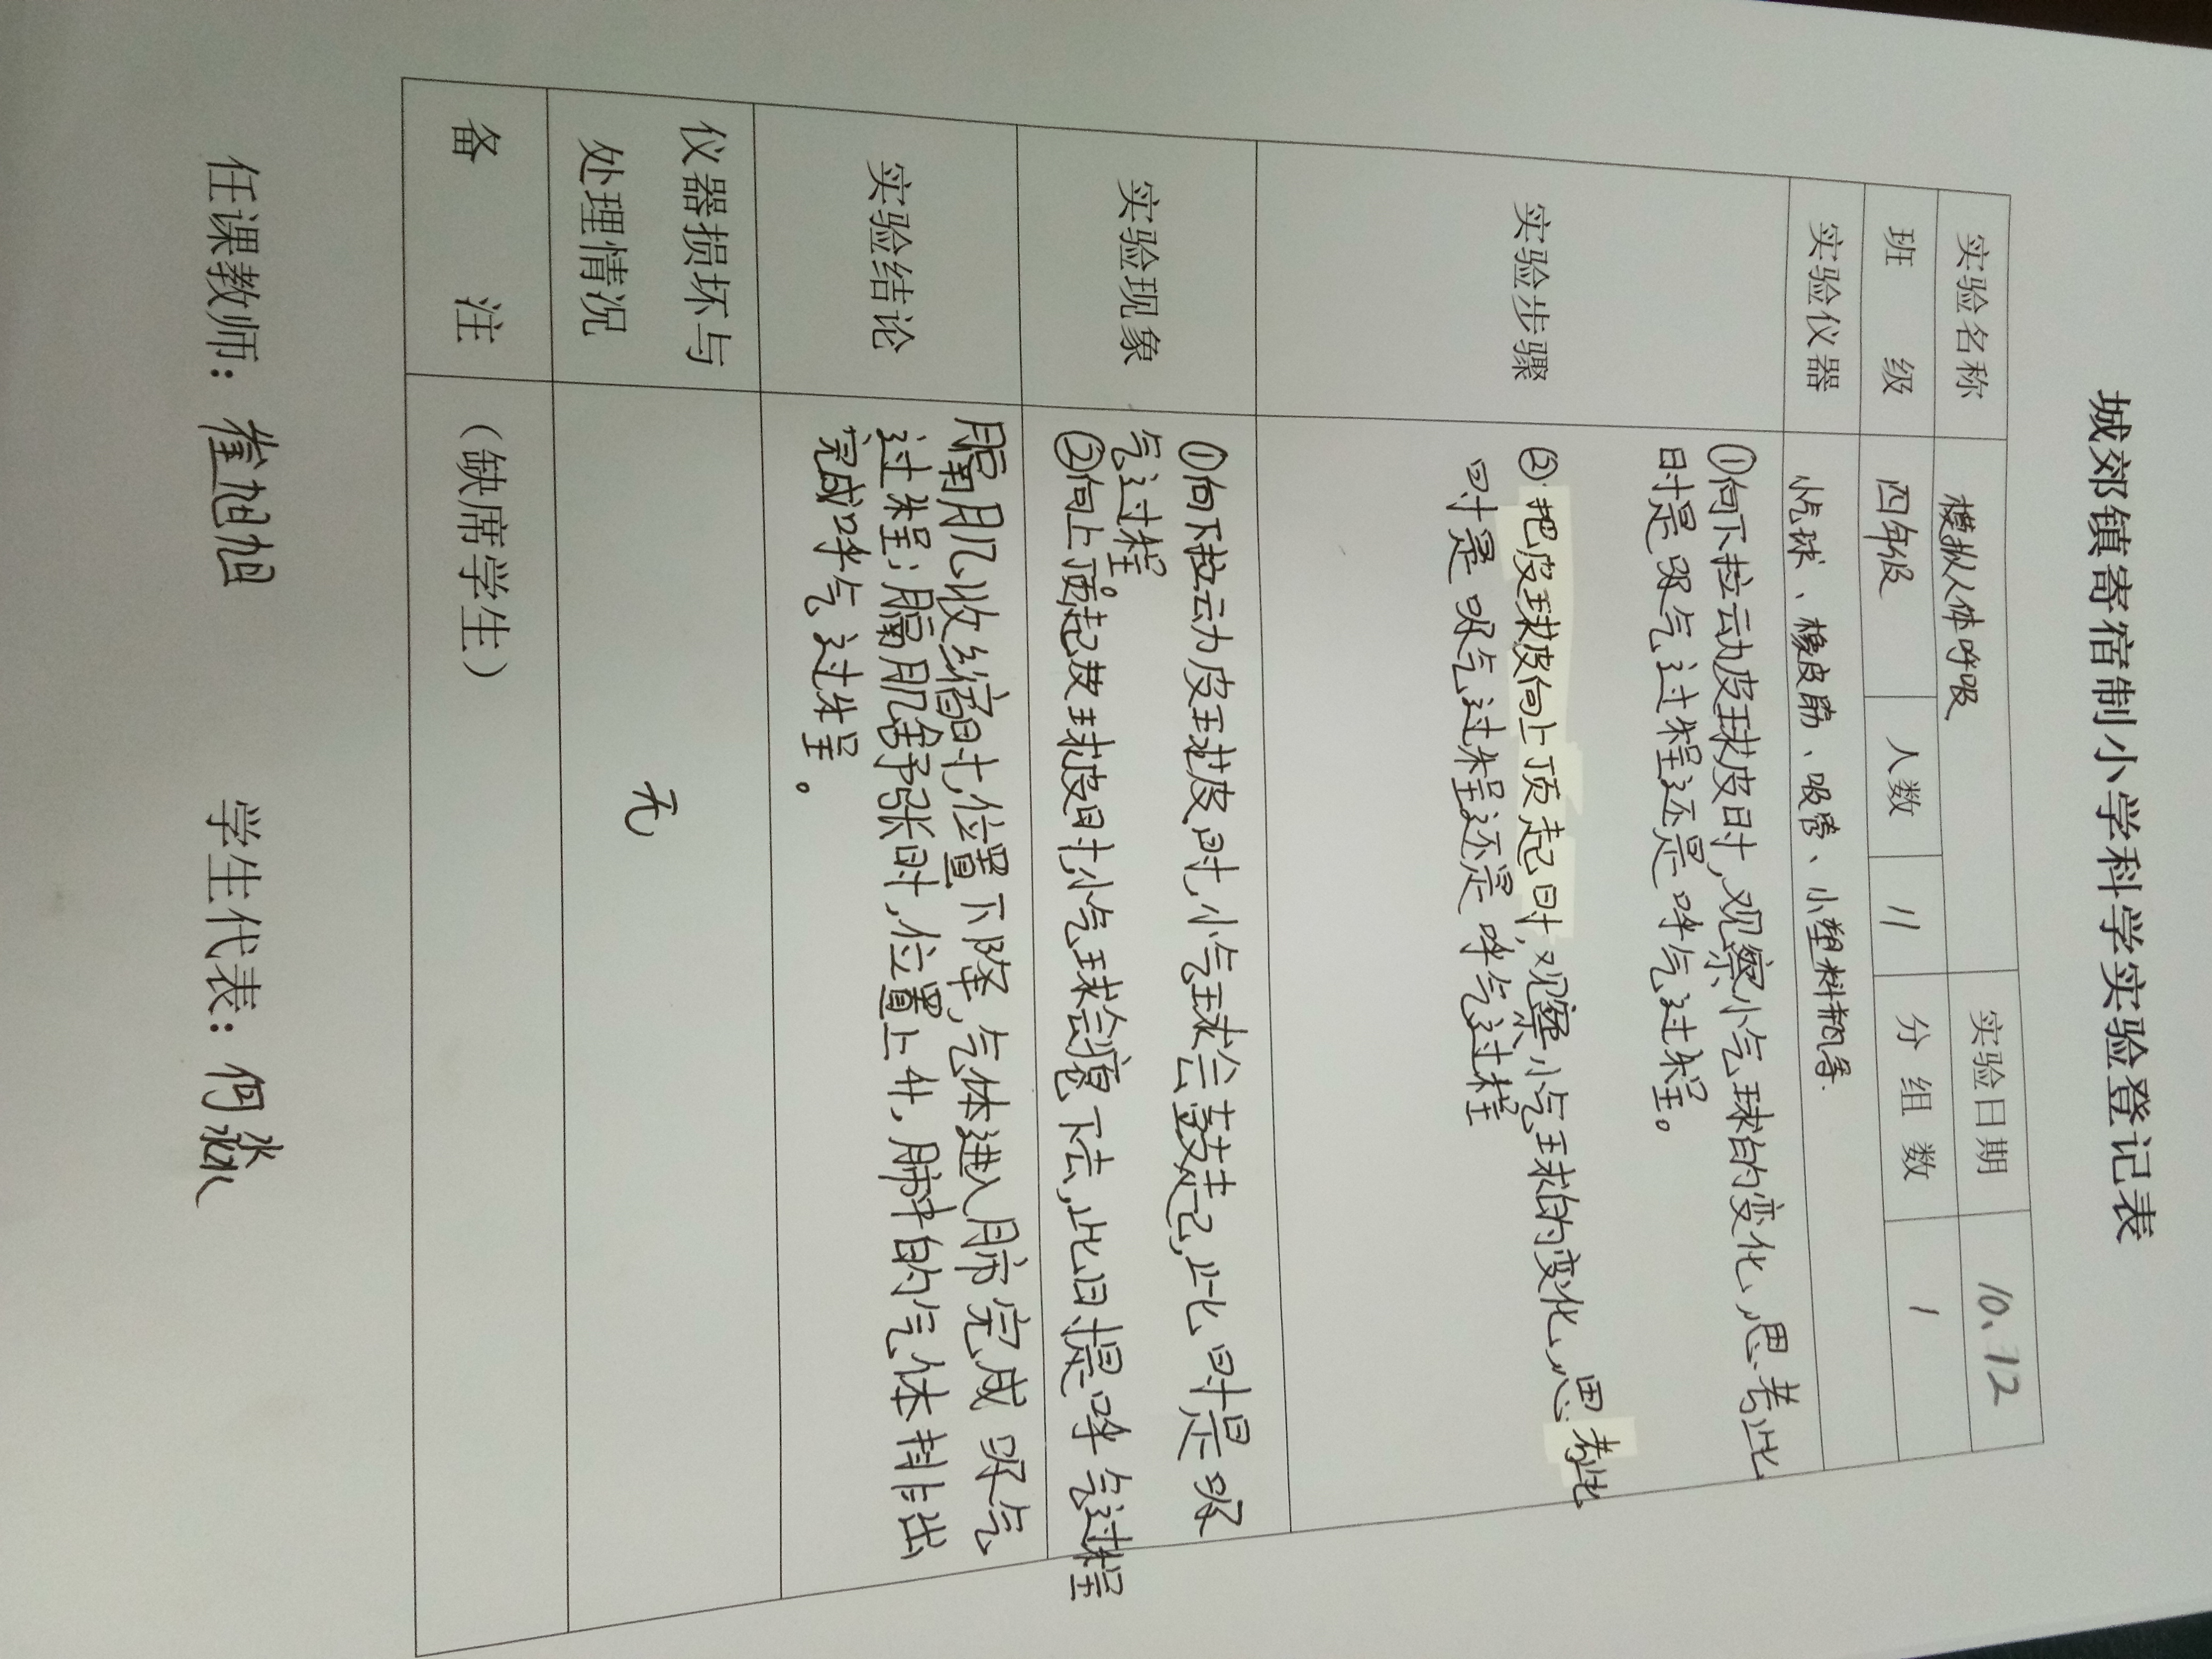 城郊镇寄宿制小学科学实验登记表
实验名称 模拟人体呼吸 实验日期 10、12
班 级 四年级 人数 11 分 组 数 1
实验仪器 小气球、橡皮筋、吸管、小塑料瓶等.
实验步骤 ①向下拉动皮球皮时,观察小气球的变化,思考此
时是吸气过程还是呼气过程。
②把皮球皮向上顶起时,观察小气球的变化,思考此
时是吸气过程还是呼气过程
实验现象 ①向下拉动皮球皮时,小气球会鼓起,此时是吸
气过程。
②向上顶起皮球皮时,小气球会瘪下去,此时是呼气过程
实验结论 膈肌收缩时,位置下降,气体进入肺完成吸气
过程;膈肌舒张时,位置上升,肺中的气体排出
完成呼气过程。
仪器损坏与
处理情况 无
备 注 (缺席学生)
任课教师: 崔旭旭 学生代表: 何淼